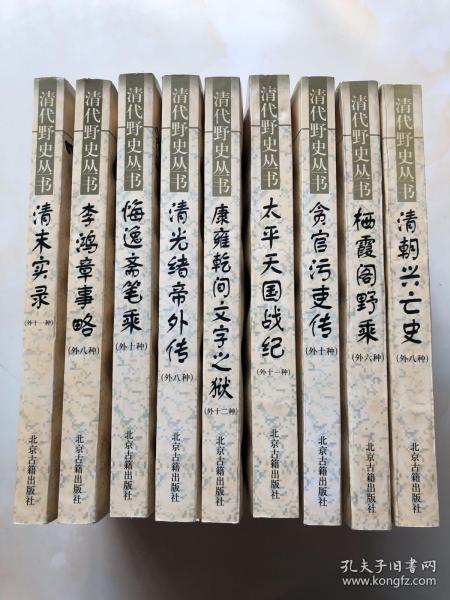 清代野史丛书
清末实录
(外十一种)
北京古籍出版社
清代野史丛书
李鸿章事略
(外八种)
北京古籍出版社
清代野史丛书
悔逸斋笔乘
(外十种)
北京古籍出版社
清代野史丛书
清光绪帝外传
(外八种)
北京古籍出版社
清代野史丛书
康雍乾间文字之狱
(外十二种)
北京古籍出版社
清代野史丛书
太平天国战纪
(外十一种)
北京古籍出版社
清代野史丛书
贪官污吏传
(外十种)
北京古籍出版社
清代野史丛书
栖霞阁野乘
(外六种)
北京古籍出版社
清代野史丛书
清朝兴亡史
(外八种)
北京古籍出版社
孔夫子旧书网
www.kongfz.com